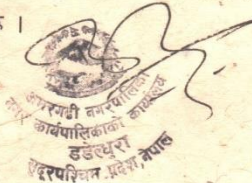 र ।
अमरगढी नगरपालिका
नगर कार्यपालिकाको कार्यालय
डडेल्धुरा
सुदूरपश्चिम प्रदेश, नेपाल